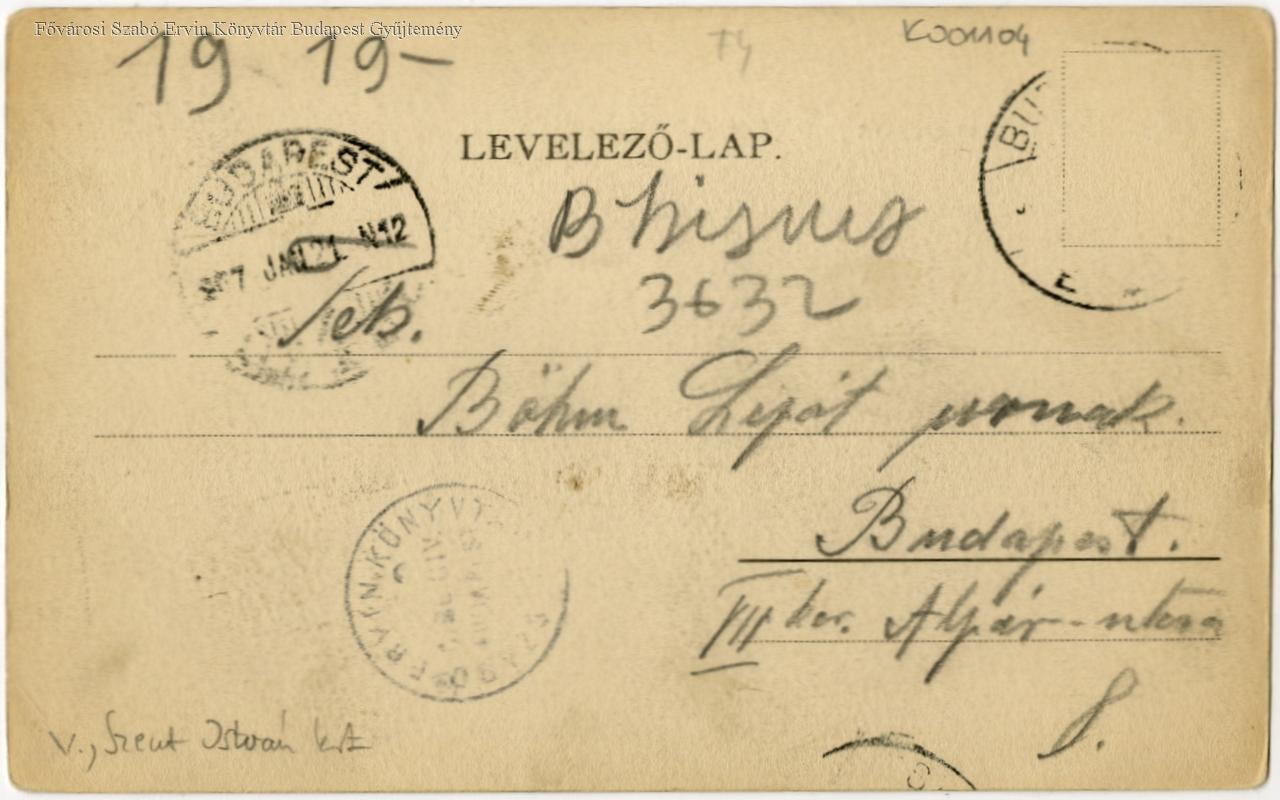 Fővárosi Szabó Ervin Könyvtár Budapest Gyűjtemény
K001104
T4
19 19-
LEVELEZŐ-LAP.
BUDAPEST
907 JAN 21 N12
BU
B
3632
Böhm Lipót urnak.
Budapest.
VII ker. Alpár-utca
8.
ERVIN KÖNYV
V., Szent István krt